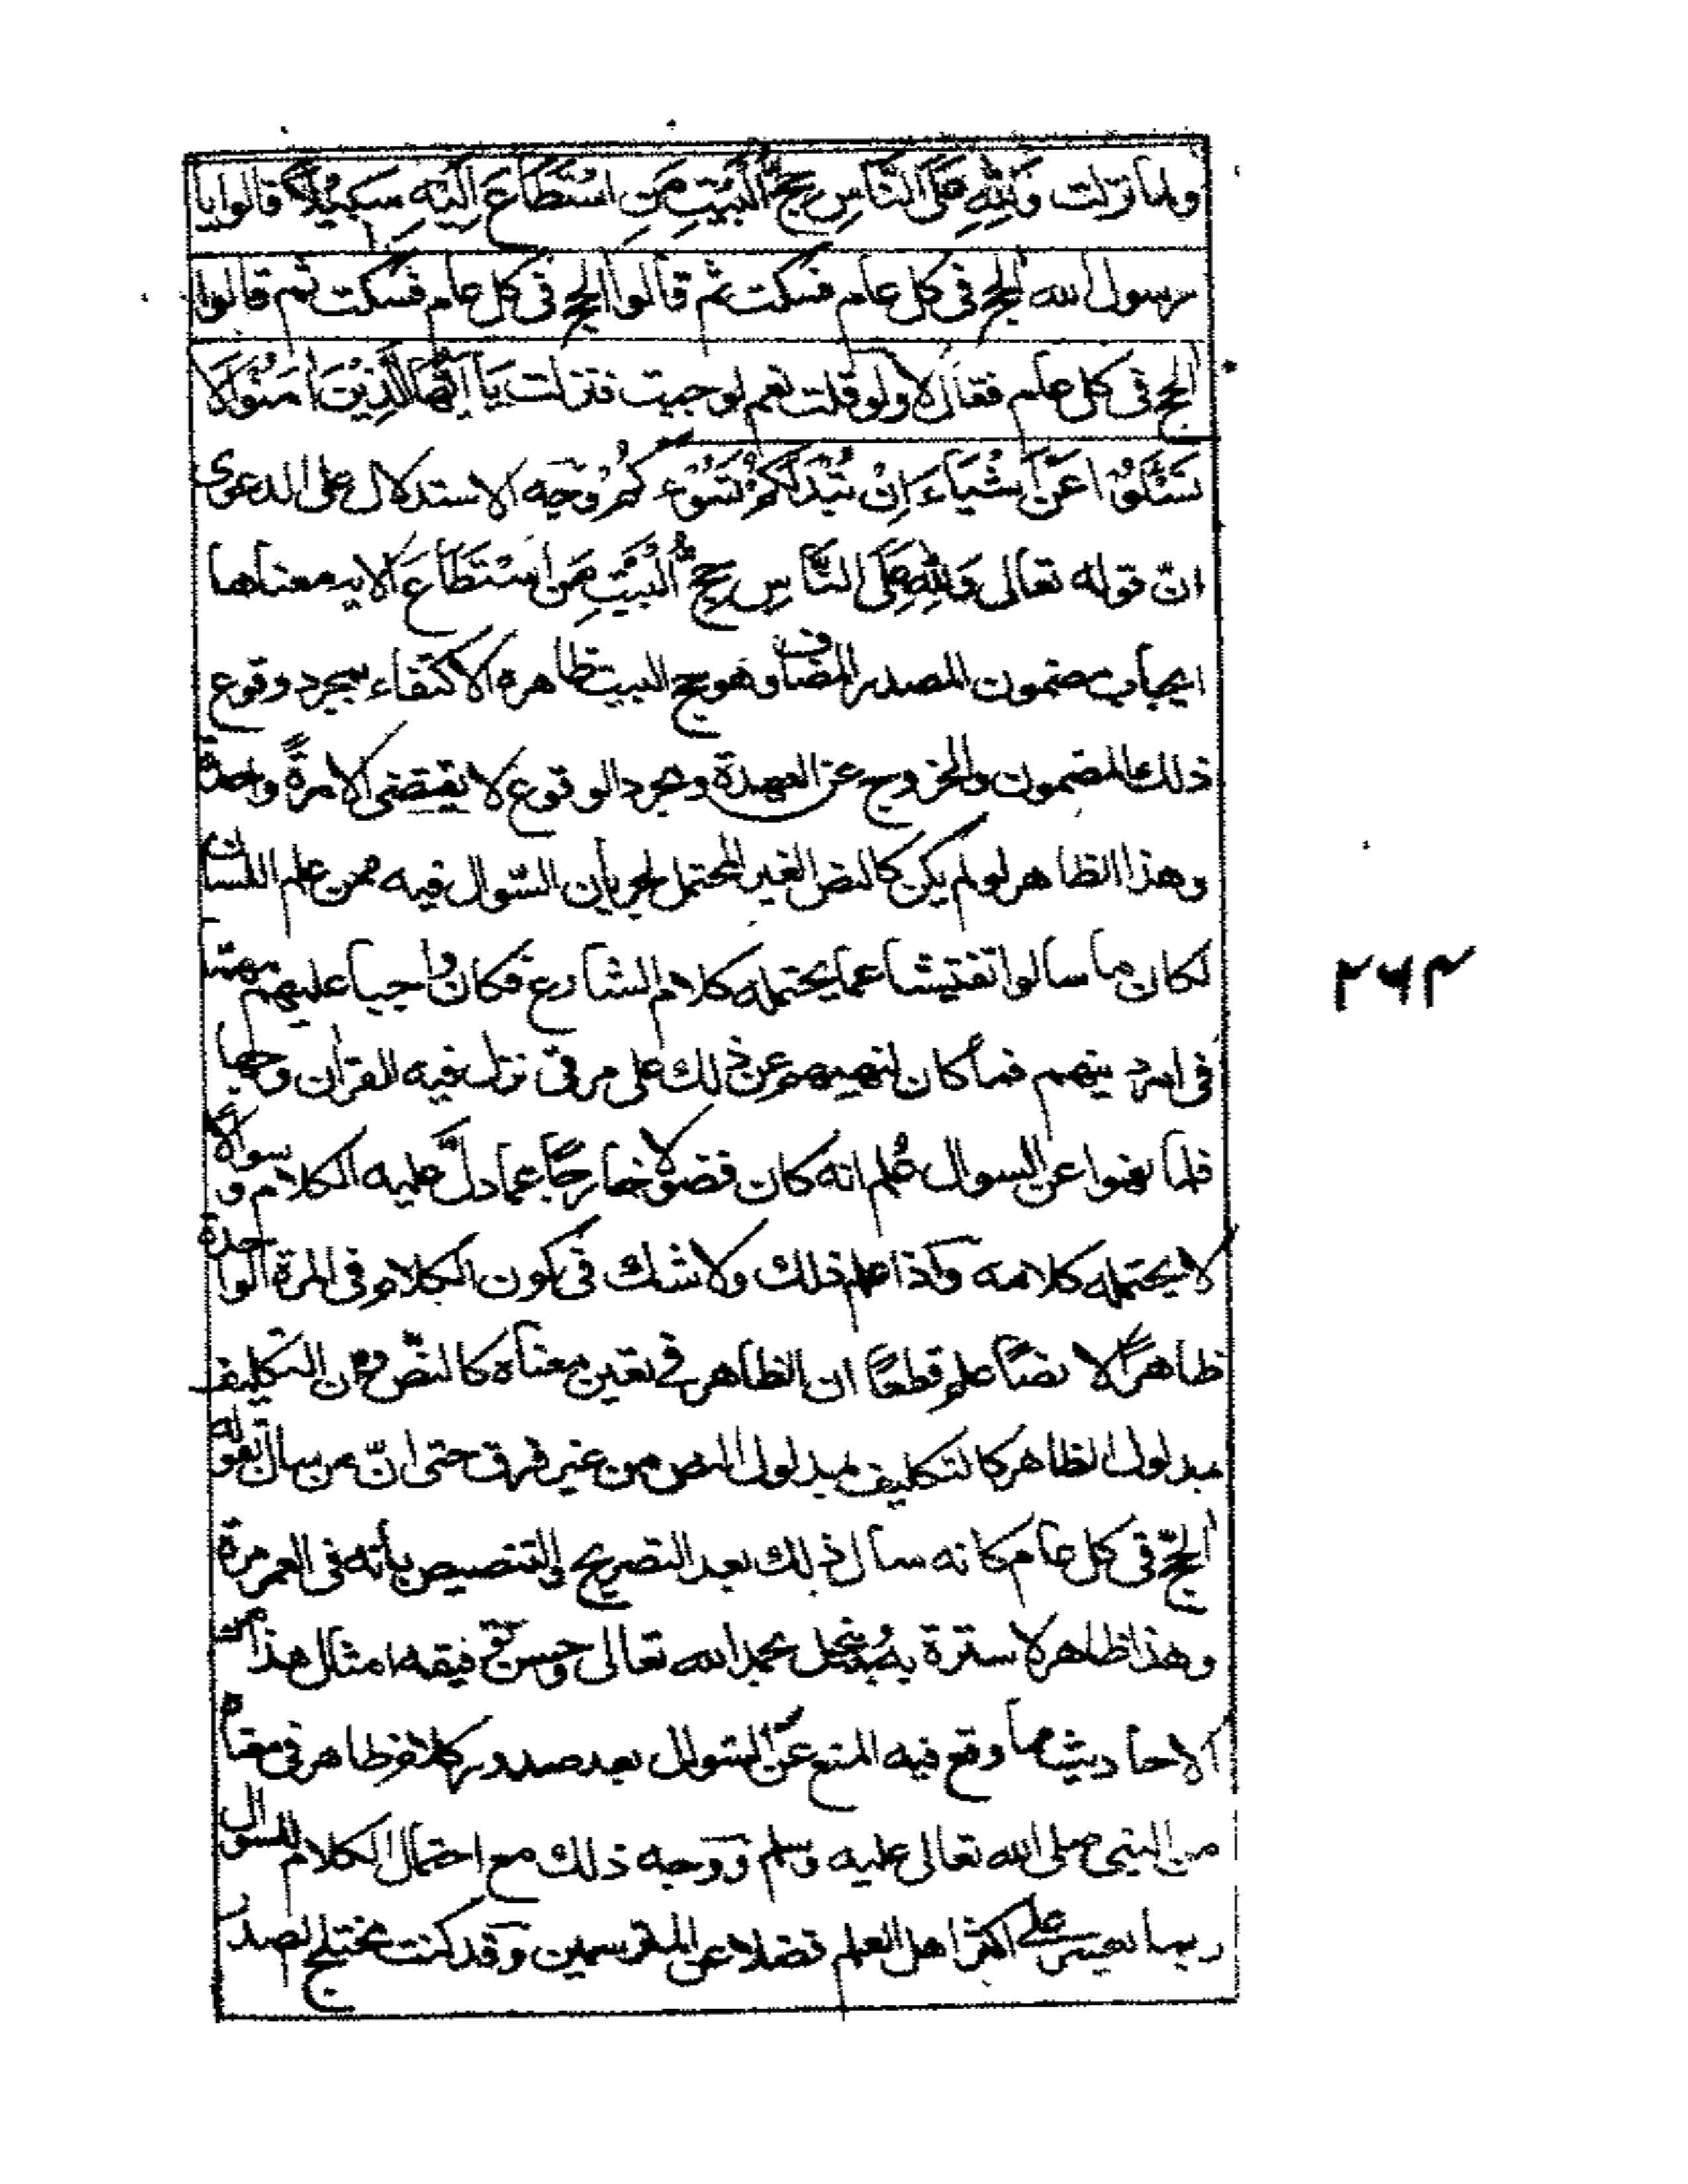 ولما نزلت وَلِلّٰهِ عَلَى النَّاسِ حِجُّ الْبَيْتِ مَنِ اسْتَطَاعَ اِلَيْهِ سَبِيْلًا قالوا يا
رسول الله الحج فى كل عام فسكت ثم قالوا الحج فى كل عام فسكت ثم قالوا
الحج فى كل عام فقال لا ولو قلت نعم لوجبت فنزلت يَا اَيُّهَا الَّذِيْنَ اٰمَنُوْا لَا
تَسْئَلُوْا عَنْ اَشْيَاءَ اِنْ تُبْدَ لَكُمْ تَسُؤْكُمْ وجه الاستدلال على الدعوى
انّ قوله تعالى وَلِلّٰهِ عَلَى النَّاسِ حِجُّ الْبَيْتِ مَنِ اسْتَطَاعَ الاية معناها
ايجاب مضمون المصدر المضاف وهو حج البيت ظاهره الاكتفاء بمجرد وقوع
ذلك المضمون والخروج عن العهدة ومجرد الوقوع لا يقتضى الا مرةً واحدة
وهذا الظاهر لو لم يكن كالنص الغير المحتمل لجريان السّوال فيه ممن علم اللسان
لكان ما سالوا تفتيشا عما يحتمله كلام الشارع فكان واجبا عليهم
فى امر دينهم فما كان لنهيهم عن ذلك على مر فى نزل فيه القران
فلما نهوا عن السوال عُلم انه كان فضولا خارجًا عما دلّ عليه الكلام و سوالا
لا يحتمله كلامه وكذا علم ذلك ولا شك فى كون الكلام فى المرة الواحدة
ظاهرًا لا نصًا علم قطعًا ان الظاهر فى تعين معناه كالنصّ وان التكليف
بمدلول الظاهر كالتكليف بمدلول النص من غير فرق حتى انّ من سال بقوله
الحجّ فى كل عام كانه سال ذلك بعد التصريح والتنصيص بأنه فى العمر مرة
وهذا ظاهر لا سترة به وينحل بحمد الله تعالى وحسن توفيقه امثال هذا من
الاحاديث مما وقع فيه المنع عن السّوال بعد صدور كلام ظاهر فى معناه
من النبى صلى الله تعالى عليه وسلم ووجه ذلك مع احتمال الكلام للسوال
ربما تعسر على اكثر اهل العلم فضلا عن المترسمين وقد كنت يختلج لصدر
٢٦٣